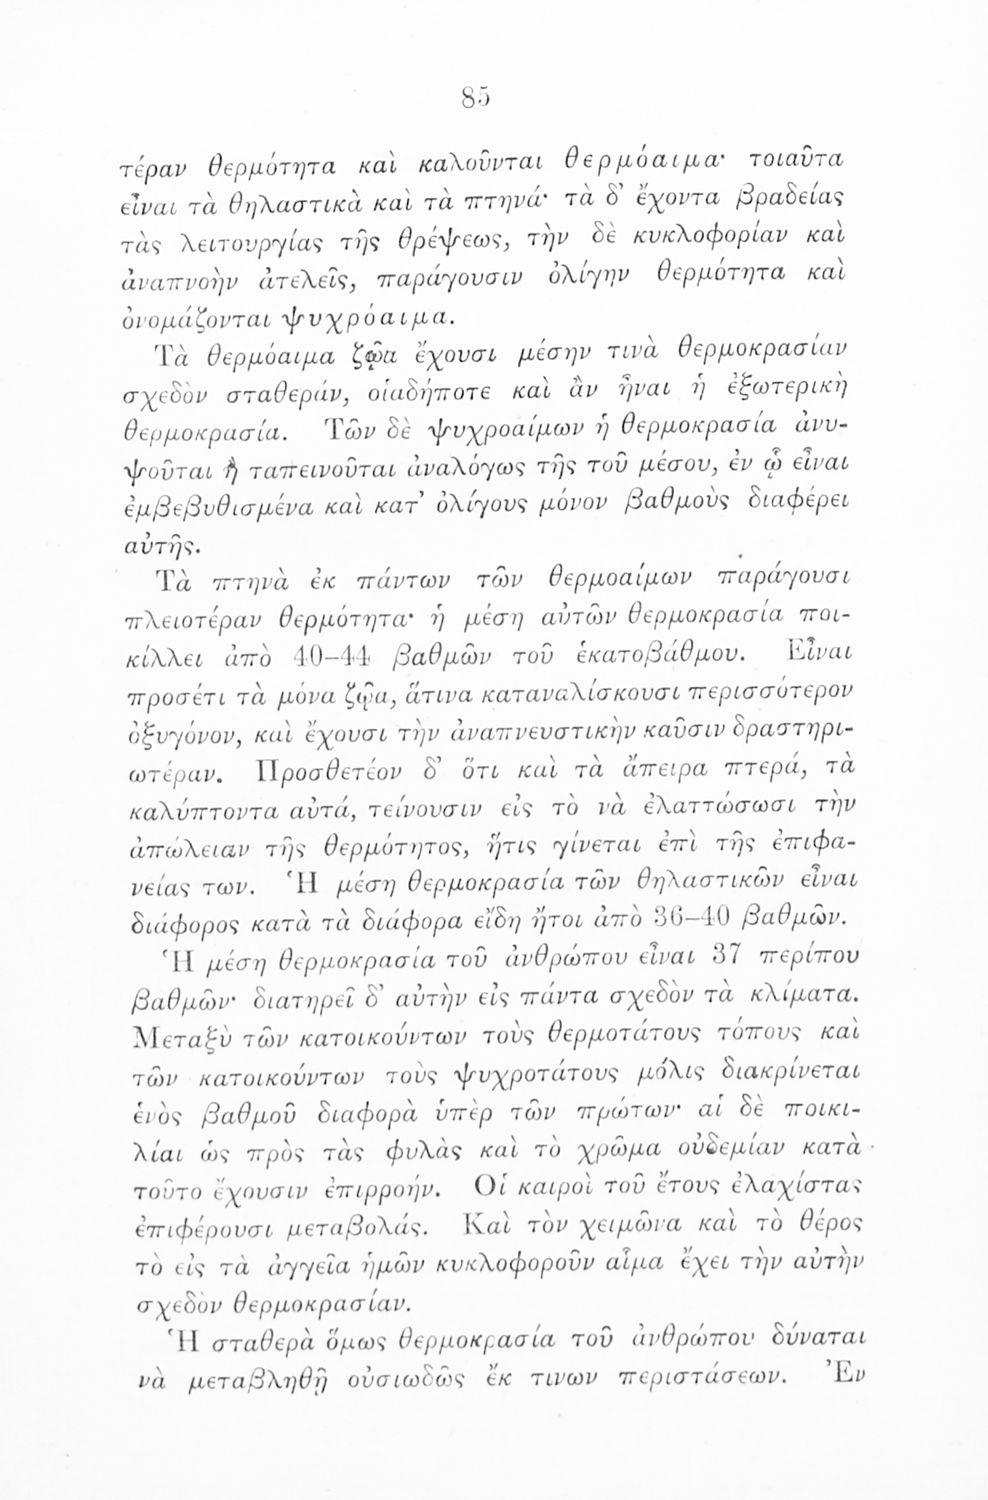 85
τέραν θερμότητα καὶ καλοῦνται θερμόαιμα· τοιαῦτα
εἶναι τὰ θηλαστικὰ καὶ τὰ πτηνά· τὰ δ’ ἔχοντα βραδείας
τὰς λειτουργίας τῆς θρέψεως, τὴν δὲ κυκλοφορίαν καὶ
ἀναπνοὴν ἀτελεῖς, παράγουσιν ὀλίγην θερμότητα καὶ
ὀνομάζονται ψυχρόαιμα.
Τὰ θερμόαιμα ζῷα ἔχουσι μέσην τινὰ θερμοκρασίαν
σχεδὸν σταθεράν, οἱαδήποτε καὶ ἂν ἦναι ἡ ἐξωτερικὴ
θερμοκρασία. Τῶν δὲ ψυχροαίμων ἡ θερμοκρασία ἀνυ-
ψοῦται ἢ ταπεινοῦται ἀναλόγως τῆς τοῦ μέσου, ἐν ᾧ εἶναι
ἐμβεβυθισμένα καὶ κατ’ ὀλίγους μόνον βαθμοὺς διαφέρει
αὐτῆς.
Τὰ πτηνὰ ἐκ πάντων τῶν θερμοαίμων παράγουσι
πλειοτέραν θερμότητα· ἡ μέση αὐτῶν θερμοκρασία ποι-
κίλλει ἀπὸ 40–44 βαθμῶν τοῦ ἑκατοβάθμου. Εἶναι
προσέτι τὰ μόνα ζῷα, ἅτινα καταναλίσκουσι περισσότερον
ὀξυγόνον, καὶ ἔχουσι τὴν ἀναπνευστικὴν καῦσιν δραστηρι-
ωτέραν. Προσθετέον δ’ ὅτι καὶ τὰ ἄπειρα πτερά, τὰ
καλύπτοντα αὐτά, τείνουσιν εἰς τὸ νὰ ἐλαττώσωσι τὴν
ἀπώλειαν τῆς θερμότητος, ἥτις γίνεται ἐπὶ τῆς ἐπιφα-
νείας των. Ἡ μέση θερμοκρασία τῶν θηλαστικῶν εἶναι
διάφορος κατὰ τὰ διάφορα εἴδη ἤτοι ἀπὸ 36–40 βαθμῶν.
Ἡ μέση θερμοκρασία τοῦ ἀνθρώπου εἶναι 37 περίπου
βαθμῶν· διατηρεῖ δ’ αὐτὴν εἰς πάντα σχεδὸν τὰ κλίματα.
Μεταξὺ τῶν κατοικούντων τοὺς θερμοτάτους τόπους καὶ
τῶν κατοικούντων τοὺς ψυχροτάτους μόλις διακρίνεται
ἑνὸς βαθμοῦ διαφορὰ ὑπὲρ τῶν πρώτων· αἱ δὲ ποικι-
λίαι ὡς πρὸς τὰς φυλὰς καὶ τὸ χρῶμα οὐδεμίαν κατὰ
τοῦτο ἔχουσιν ἐπιρροήν. Οἱ καιροὶ τοῦ ἔτους ἐλαχίστας
ἐπιφέρουσι μεταβολάς. Καὶ τὸν χειμῶνα καὶ τὸ θέρος
τὸ εἰς τὰ ἀγγεῖα ἡμῶν κυκλοφοροῦν αἷμα ἔχει τὴν αὐτὴν
σχεδὸν θερμοκρασίαν.
Ἡ σταθερὰ ὅμως θερμοκρασία τοῦ ἀνθρώπου δύναται
νὰ μεταβληθῇ οὐσιωδῶς ἔκ τινων περιστάσεων. Ἐν